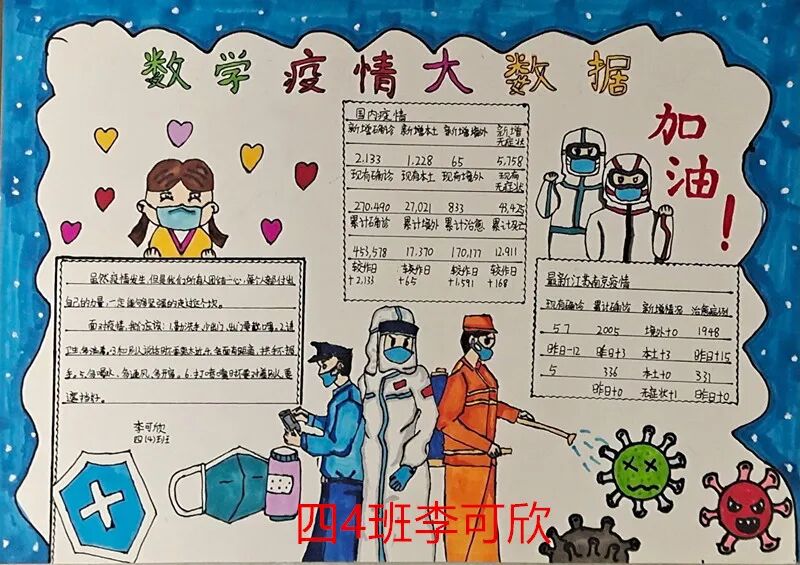 数学疫情大数据
加油！
国内疫情
新增确诊 新增本土 新增境外 新增无症状
2.133 1.228 65 5,758
现有确诊 现有本土 现有境外 现有无症状
270.490 27,021 833 43,425
累计确诊 累计境外 累计治愈 累计死亡
453,578 17.370 170,177 12.911
较昨日+2,133 较昨日+65 较昨日+1.591 较昨日+168
最新江苏南京疫情
现有确诊 累计确诊 新增情况 治愈病例
57 2005 境外+0 1948
昨日-12 昨日+3 本土+3 昨日+15
5 336 本土+0 331
昨日+0 无症状+1 昨日+0
虽然疫情发生，但是我们所有人团结一心，每个人都付出
自己的力量，一定能够坚强的走过这个坎。
面对疫情，我们应该：1.勤洗手，小出门，出门要戴口罩。2.讲
卫生，多消毒。3.和别人谈话时不要靠太近。4.
手。5.多喝水，多通风，多开窗。6.打喷嚏时不要对着别人
李可欣
四(4)班
四4班李可欣